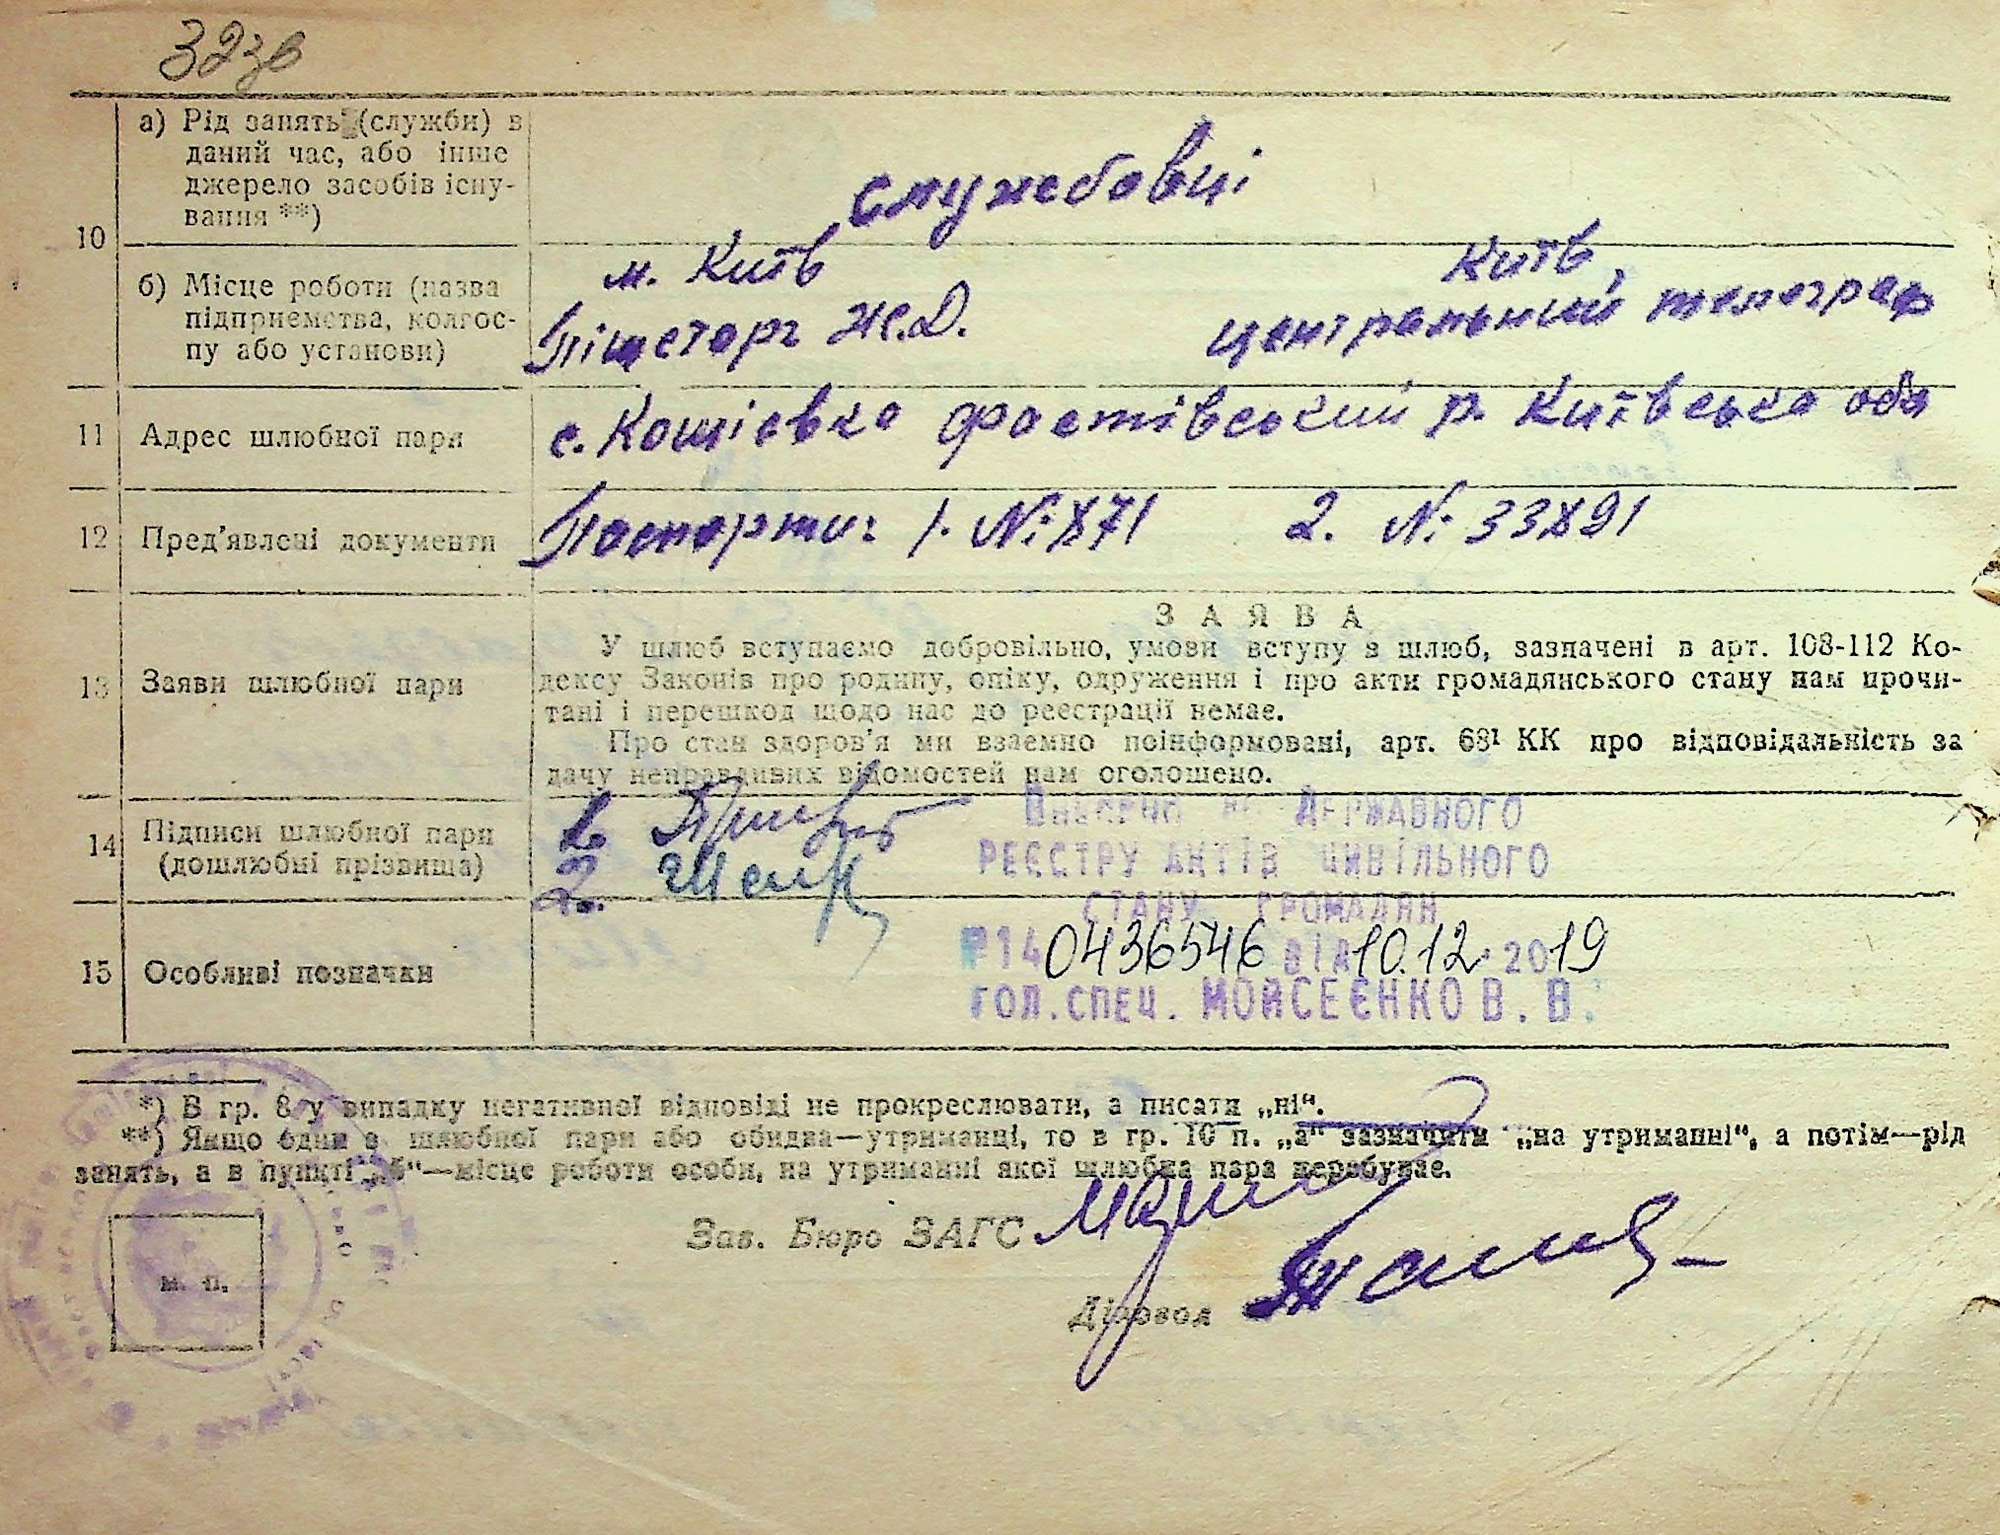 32зв
10
а) Рід занять (служби) в
даний час, або інше
джерело засобів існу-
вання **)
службовці
б) Місце роботи (назва
підприємства, колгос-
пу або установи)
м. Київ
Піщеторг Ж.Д.
Київ,
центральний телеграф
11 Адрес шлюбної пари
с. Кощіевка Фастівський р. Київська обл
12 Пред'явлені документи
Паспорти: 1. №: 871 2. №: 33891
13 Заяви шлюбної пари
ЗАЯВА
У шлюб вступаємо добровільно, умови вступу в шлюб, зазначені в арт. 108-112 Ко-
дексу Законів про родину, опіку, одруження і про акти громадянського стану нам прочи-
тані і перешкод щодо нас до реєстрації немає.
Про стан здоров'я ми взаємно поінформовані, арт. 68¹ КК про відповідальність за
дачу неправдивих відомостей нам оголошено.
14 Підписи шлюбної пари
(дошлюбні прізвища)
1.
2.
Внесено до Державного
реєстру актів цивільного
стану громадян
№14 0436546 від 10.12.2019
гол.спец. Мойсеєнко В.В.
15 Особливі позначки
*) В гр. 8 у випадку негативної відповіді не прокреслювати, а писати „ні“.
**) Якщо один з шлюбної пари або обидва—утриманці, то в гр. 10 п. „а“ зазначити „на утриманні“, а потім—рід
занять, а в пункті „б“—місце роботи особи, на утриманні якої шлюбна пара перебуває.
Зав. Бюро ЗАГС
Діловод
м. п.